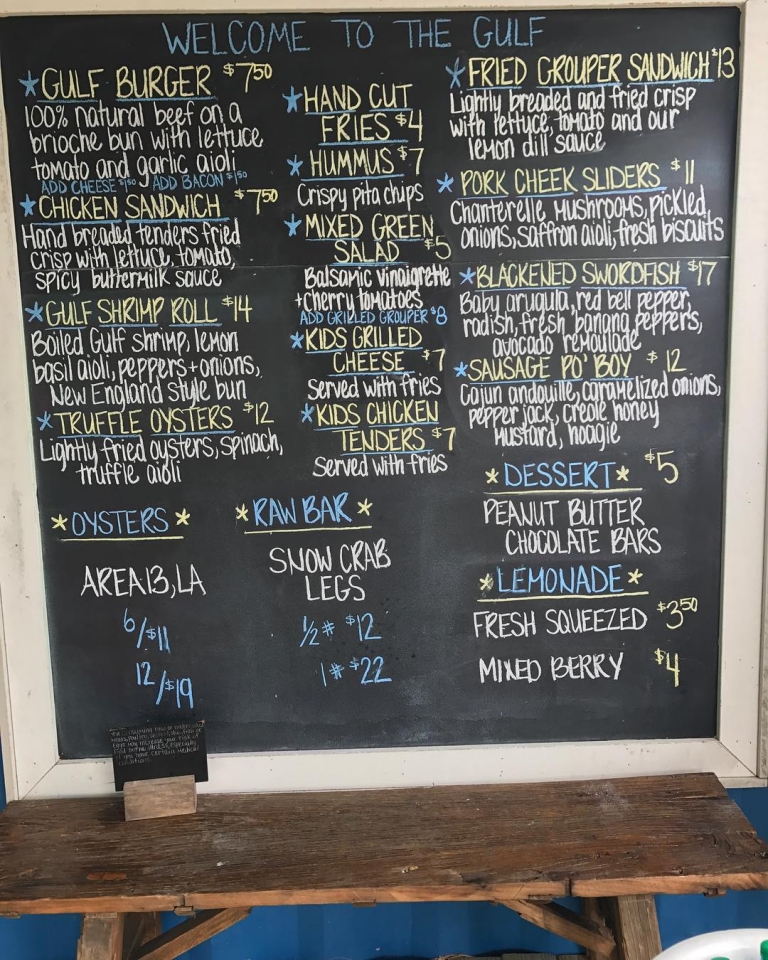 WELCOME TO THE GULF
*GULF BURGER $7.50
100% natural beef on a
brioche bun with lettuce
tomato and garlic aioli
ADD CHEESE $1.50, ADD BACON $1.50
*CHICKEN SANDWICH $7.50
Hand breaded tenders fried
crisp with lettuce, tomato,
spicy buttermilk sauce
*GULF SHRIMP ROLL $14
Boiled Gulf shrimp, lemon
basil aioli, peppers + onions,
New England style bun
*TRUFFLE OYSTERS $12
Lightly fried oysters, spinach,
truffle aioli
*HAND CUT
FRIES $4
*HUMMUS $7
Crispy pita chips
*MIXED GREEN
SALAD $5
Balsamic vinaigrette
+cherry tomatoes
ADD GRILLED GROUPER $8
*KIDS GRILLED
CHEESE $7
Served with fries
*KIDS CHICKEN
TENDERS $7
Served with fries
*FRIED GROUPER SANDWICH $13
Lightly breaded and fried crisp
with lettuce, tomato and our
lemon dill sauce
*PORK CHEEK SLIDERS $11
Chanterelle mushrooms, pickled
onions, saffron aioli, fresh biscuits
*BLACKENED SWORDFISH $17
Baby arugula, red bell pepper,
radish, fresh banana peppers,
avocado remoulade
*SAUSAGE PO' BOY $12
Cajun andouille, caramelized onions,
pepper jack, creole honey
mustard, hoagie
*OYSTERS*
AREA 13, LA
6/$11
12/$19
*RAW BAR*
SNOW CRAB
LEGS
1/2# $12
1# $22
*DESSERT* $5
PEANUT BUTTER
CHOCOLATE BARS
*LEMONADE*
FRESH SQUEEZED $3.50
MIXED BERRY $4